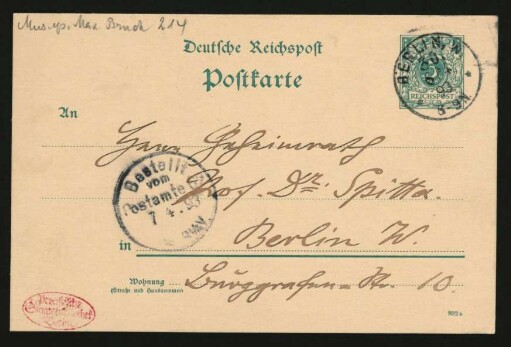 Mus. ep. Max Bruch 214
Deutsche Reichspost
Postkarte
BERLIN, W.
93
8-9N.
REICHSPOST
An
Herrn Geheimrath
Prof. Dr. Spitta.
Bestellt
vom
Postamte
7 4. 93
in
Berlin W.
Wohnung
(Straße und Hausnummer)
Burggrafen-Str. 10.
Preußische
Staatsbibliothek
Berlin